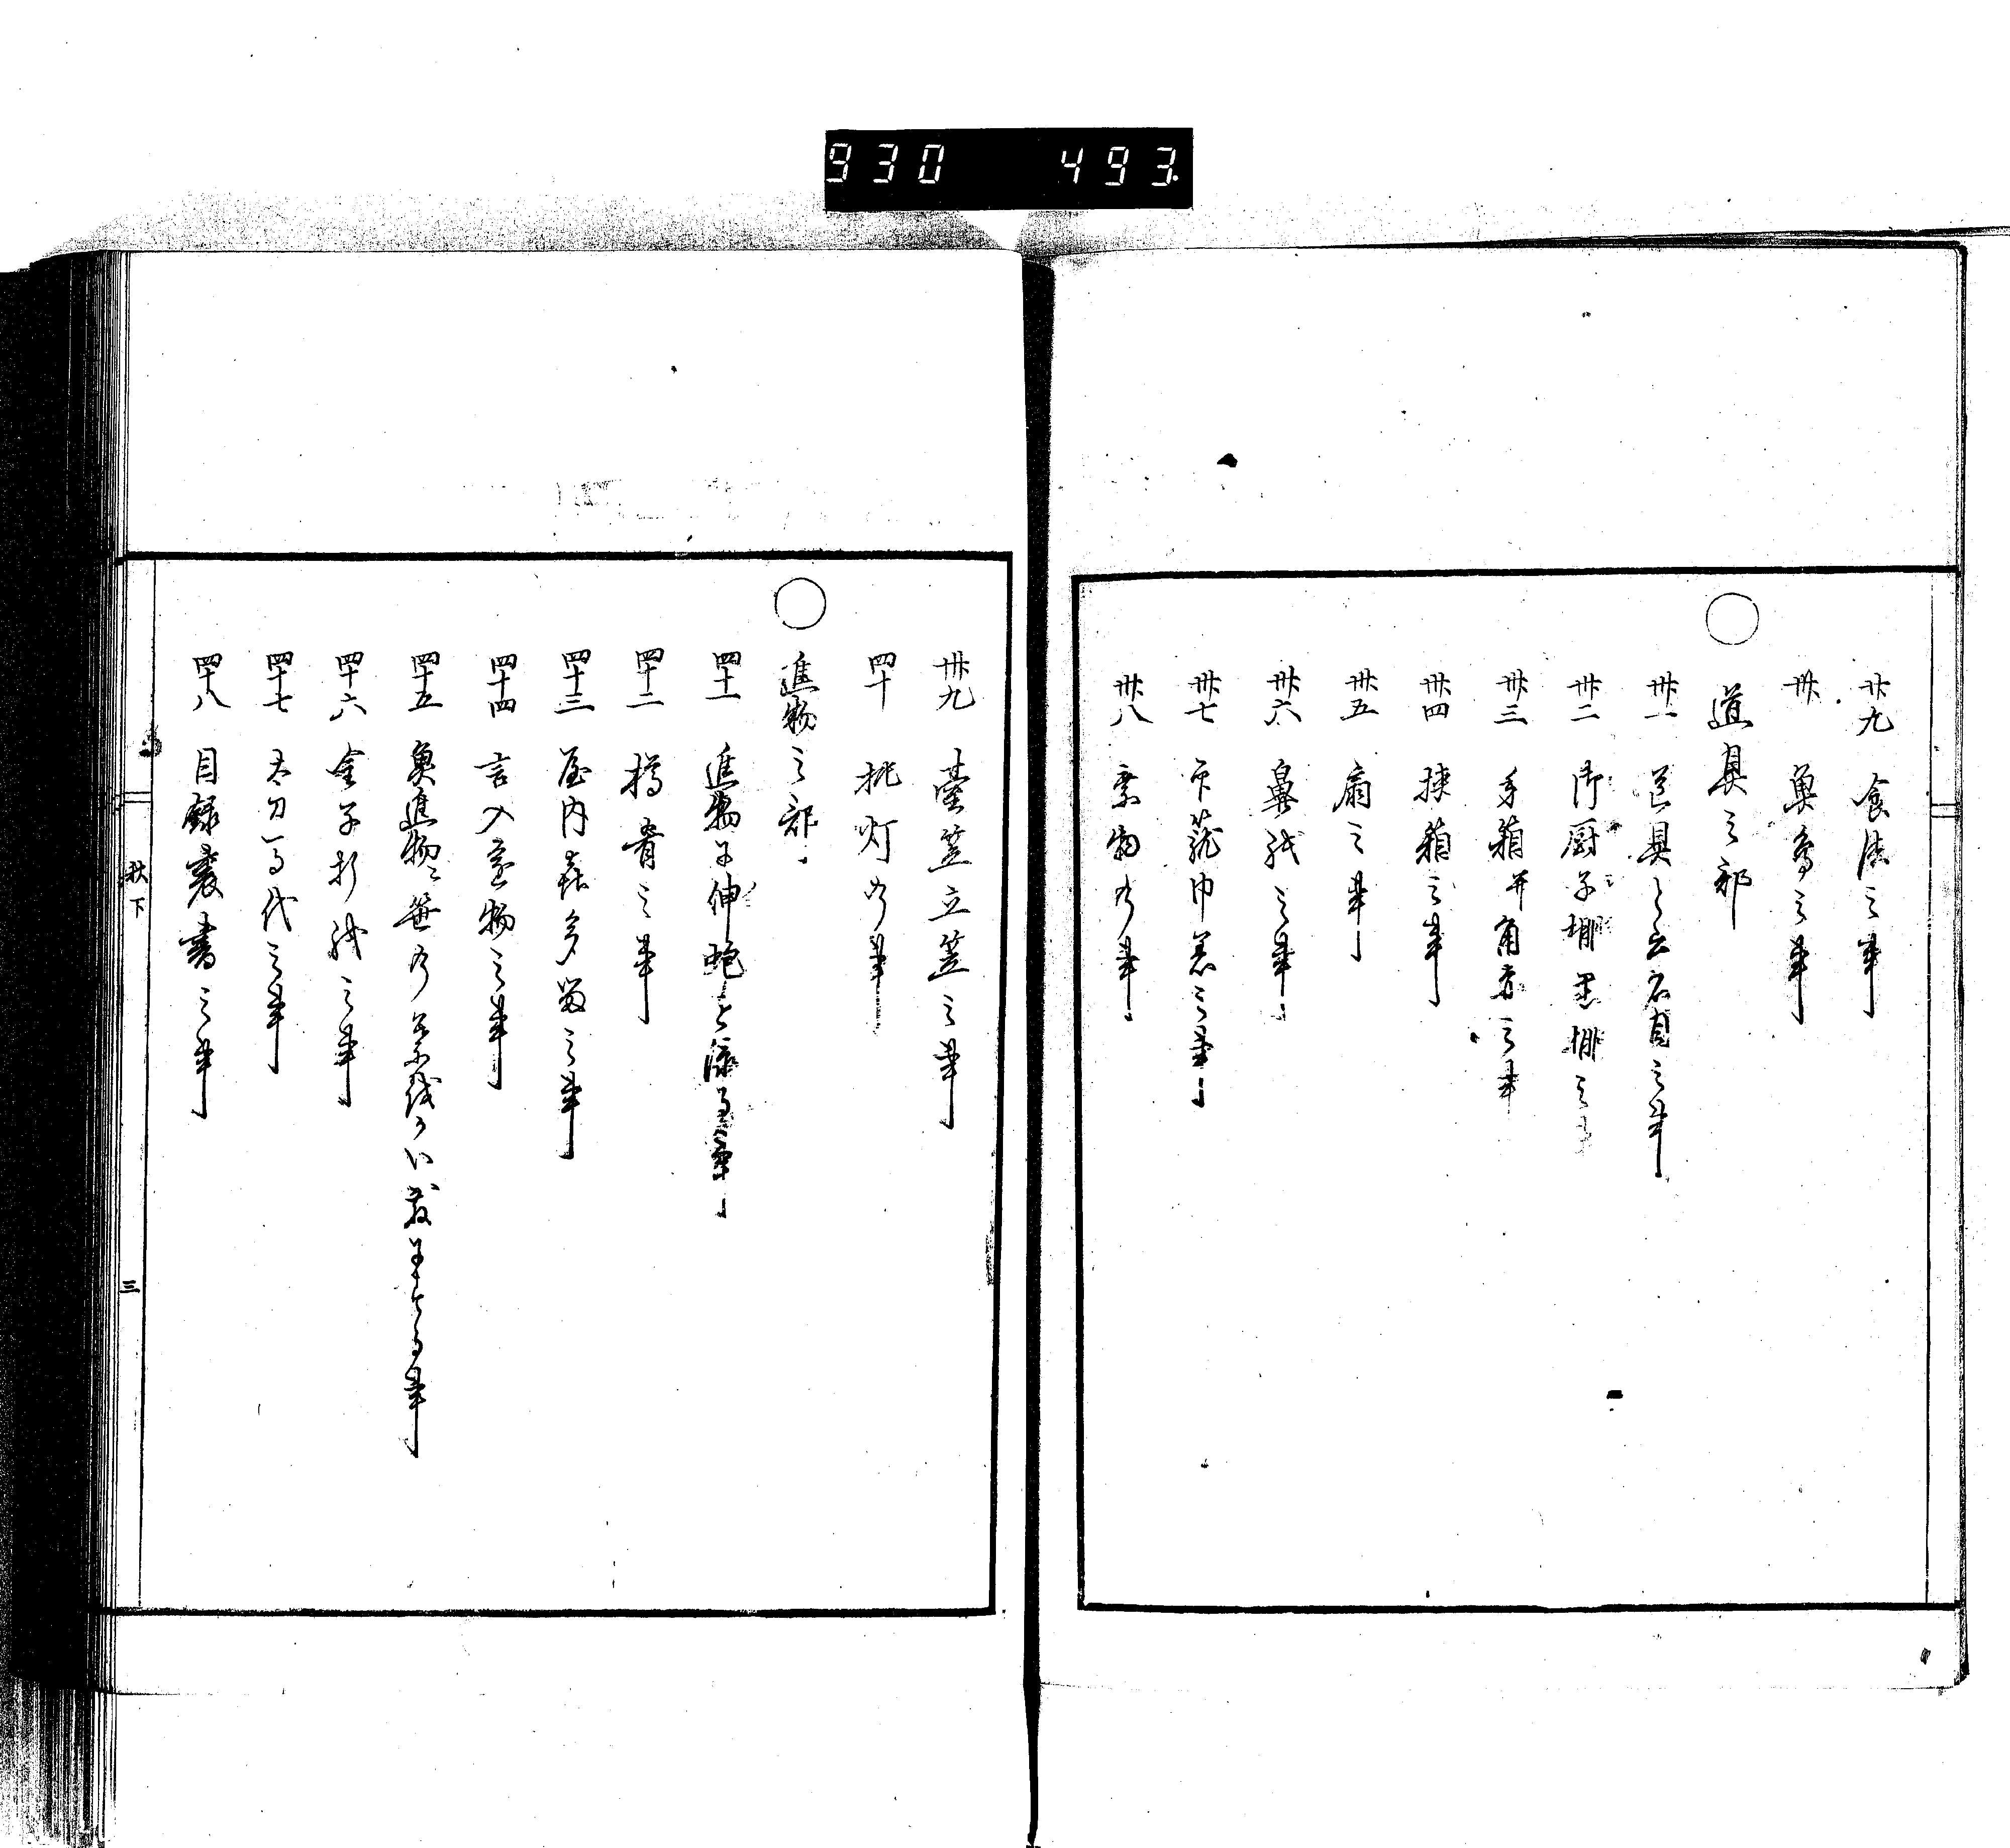 930 493.
廿九 食法之事
卅 魚鳥之事
○ 道具之部
卅一 道具之名目之事
卅二 御厨子棚黒棚之事
卅三 手箱并角赤之事
卅四 挟箱之事
卅五 扇之事
卅六 鼻紙之事
卅七 巾着之事
卅八 乗物乃事
卅九 臺笠立笠之事
四十 挑灯乃事
○ 進物之部
四十一 進物ニ伸鮑を添る事
四十二 樽肴之事
四十三 屋内喜多留之事
四十四 言入産物之事
四十五 魚進物ニ笹乃葉
四十六 金子折紙之事
四十七 太刀馬代之事
四十八 目録裏書之事
秋下
三